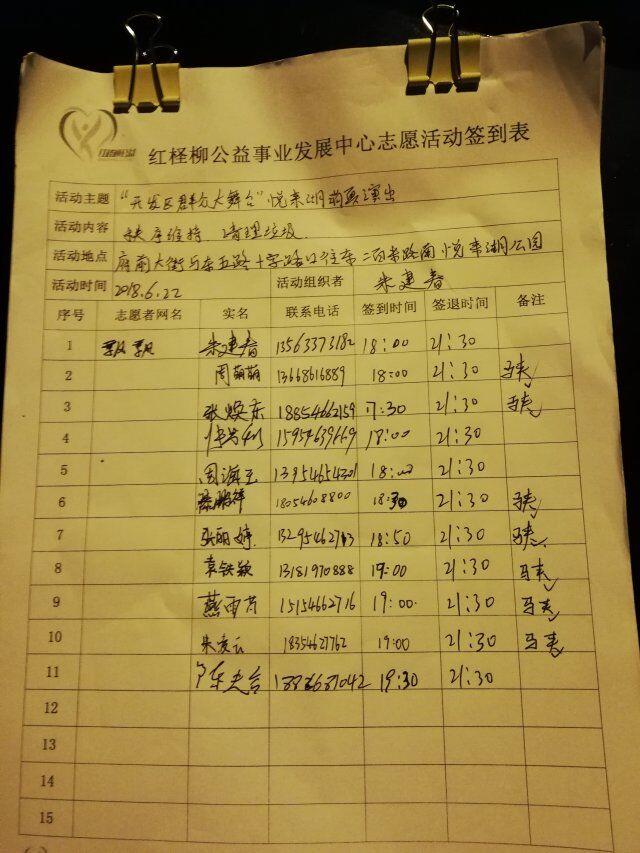 红柽柳公益事业发展中心志愿活动签到表
活动主题 "开发区群众大舞台"悦来湖 演出
活动内容 秩序维持 清理垃圾
活动地点 府前大街与东五路十字路口往东二百米路南悦来湖公园
活动时间 2018.6.22 活动组织者 朱建春
序号 志愿者网名 实名 联系电话 签到时间 签退时间 备注
1 飘飘 朱建春 13563373182 18:00 21:30
2 周萌萌 13668616889 18:00 21:30 马夹
3 张焕东 18854662159 17:30 21:30 马夹
4 15954639669 18:00 21:30
5 周海玉 13954654301 18:00 21:30
6 18054608800 18:30 21:30 马夹
7 张丽婷 21:30 18:50 马夹
8 袁铁颖 13181970888 19:00 21:30 马夹
9 燕雨芹 15154662716 19:00 21:30 马夹
10 18354627762 19:00 21:30 马夹
11 19:30 21:30
12
13
14
15